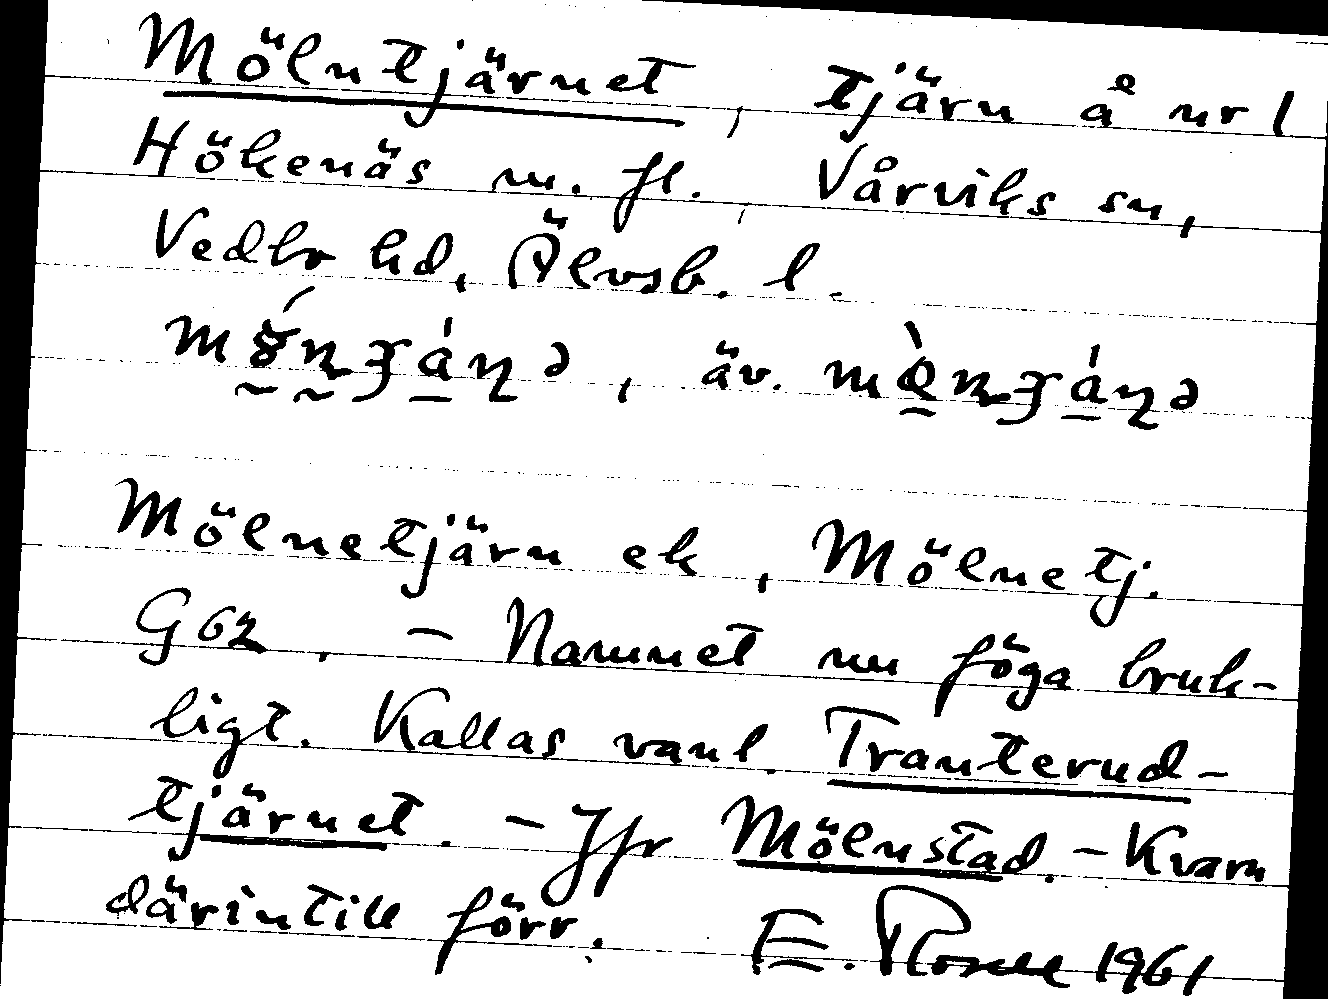 Mölntjärnet, tjärn å nr 1
Hökenäs m. fl., Vårviks sn,
Vedbo hd, Älvsb. l.
äv.
Mölnetjärn ek, Mölnetj.
G 62. – Namnet nu föga bruk-
ligt. Kallas vanl. Tranterud-
tjärnet. – Jfr Mölnstad. – Kvarn
därintill förr. E. 1961